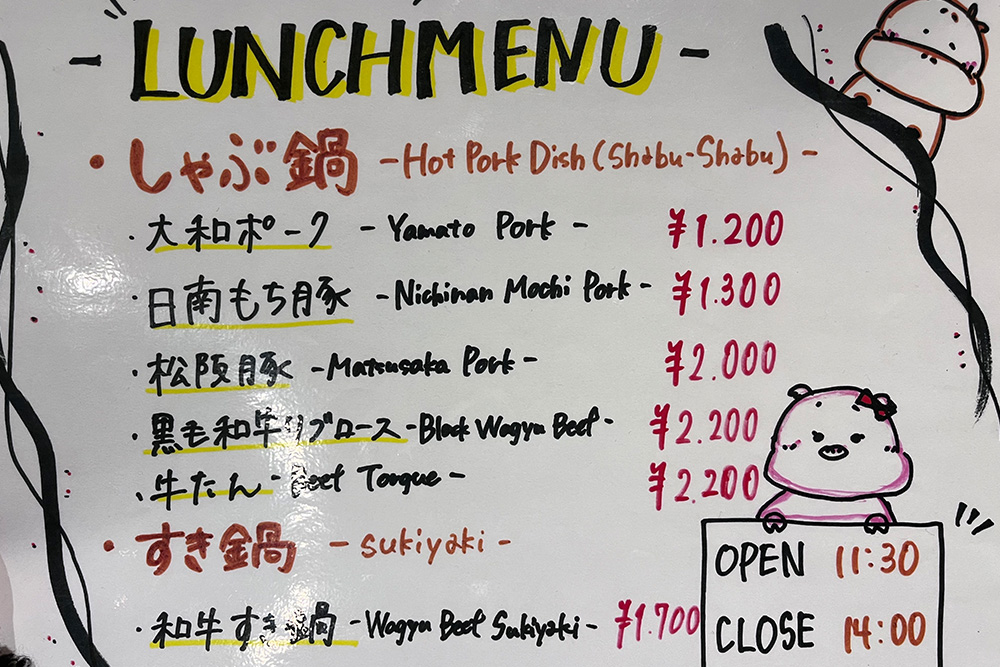 - LUNCHMENU -
・しゃぶ鍋 - Hot Pork Dish (Shabu-Shabu) -
・大和ポーク - Yamato Pork - ¥1.200
・日南もち豚 - Nichinan Mochi Pork - ¥1.300
・松阪豚 - Matsusaka Pork - ¥2.000
・黒毛和牛リブロース - Black Wagyu Beef - ¥2.200
・牛たん - Beef Tongue - ¥2.200
・すき鍋 - sukiyaki -
・和牛すき鍋 - Wagyu Beef Sukiyaki - ¥1.700
OPEN 11:30
CLOSE 14:00